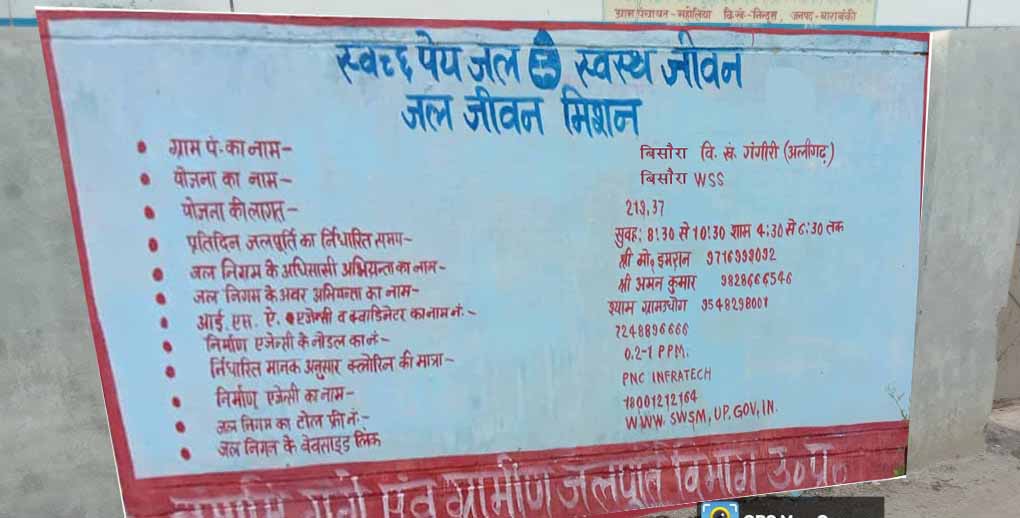 ग्राम पंचायत-महोलिया वि.खं.-निन्दूरा, जनपद-बाराबंकी
स्वच्छ पेय जल स्वस्थ जीवन
जल जीवन मिशन
ग्राम पं. का नाम- बिसौरा वि. खं. गंगीरी (अलीगढ़)
योजना का नाम- बिसौरा WSS
योजना की लागत- 213,37
प्रतिदिन जलपूर्ति का र्निधारित समय- सुवह: 8:30 से 10:30 शाम 4:30 से 6:30 तक
जल निगम के अधिसासी अभियन्ता का नाम- श्री मो. इमरान 9716993092
जल निगम के अवर अभियन्ता का नाम- श्री अमन कुमार 9828666546
आई. एस. ऐ. एजेन्सी व क्वाडिनेटर का नाम नं.- श्याम ग्रामउधोग 9548298001
निर्माण एजेन्सी के नोडल का नं- 7248896666
र्निधारित मानक अनुसार क्लोरिन की मात्रा- 0.2-1 PPM.
निर्माण एजेन्सी का नाम- PNC INFRATECH
जल निगम का टोल फ्री नं.- 18001212164
जल निगन के वेवसाइड लिंक WWW. SWSM, UP. GOV, IN.
नमामि गंगे एंव ग्रामीण जलपूर्ति विभाग उ०प्र०